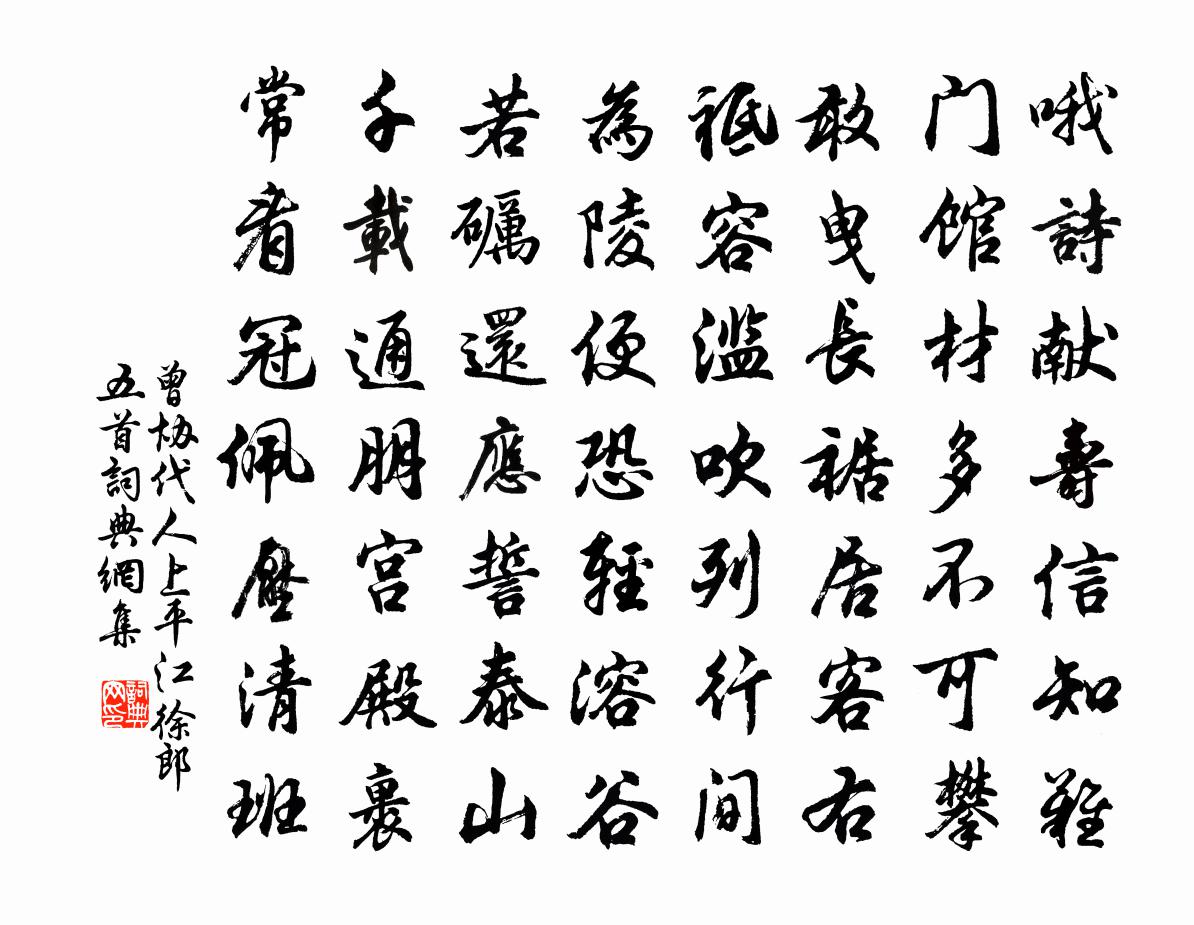 哦詩献壽信知難
门馆材多不可攀
敢曳長裾居客右
祗容滥吹列行间
為陵便恐輕溶谷
若礪還應誓泰山
千載通明宫殿裏
常看冠佩壓清班
曾协代人上平江徐郎
五首詞典網集
詞典网印